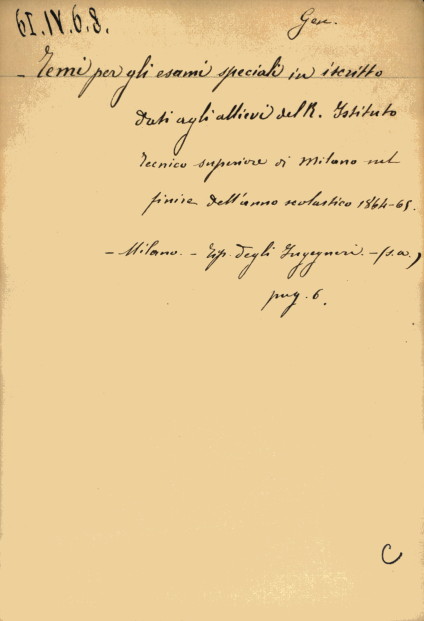 61.IV.6.8.
Gen.
- Temi per gli esami speciali in iscritto
dati agli allievi del R. Istituto
tecnico superiore di Milano nel
finire dell'anno scolastico 1864-65.
- Milano. - Tip. degli Ingegneri. - (s.a.)
pag. 6.
C